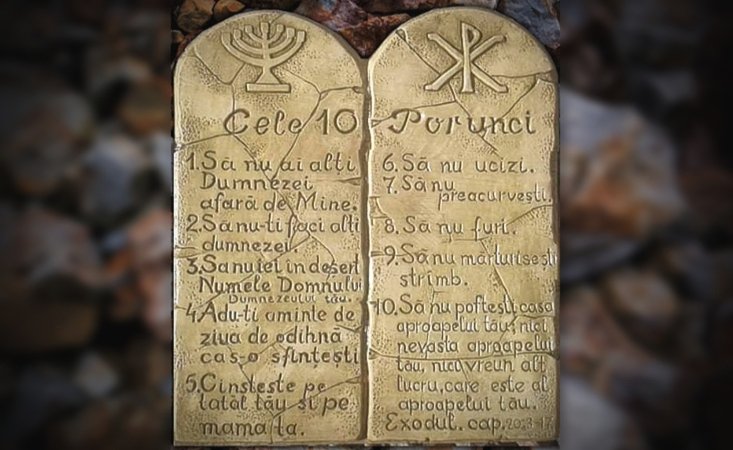 Cele 10 Porunci
1. Să nu ai alți
Dumnezei
afară de Mine.
2. Să nu-ti faci alti
dumnezei.
3. Sa nu iei in desert
Numele Domnului
Dumnezeului tău.
4. Adu-ti aminte de
ziua de odihnă
ca s-o sfințești
5. Cinsteste pe
tatăl tău si pe
mama ta.
6. Să nu ucizi.
7. Să nu
preacurvești.
8. Să nu furi.
9. Să nu mărturisesti
strîmb.
10. Să nu poftesti casa
aproapelui tău, nici
nevasta aproapelui
tău, nici vreun alt
lucru, care este al
aproapelui tău.
Exodul. cap. 20:3-17